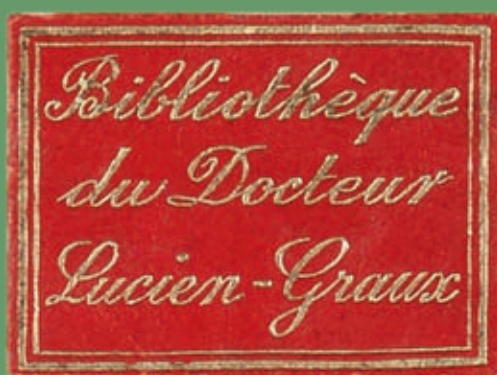 Bibliothèque
du Docteur
Lucien-Graux